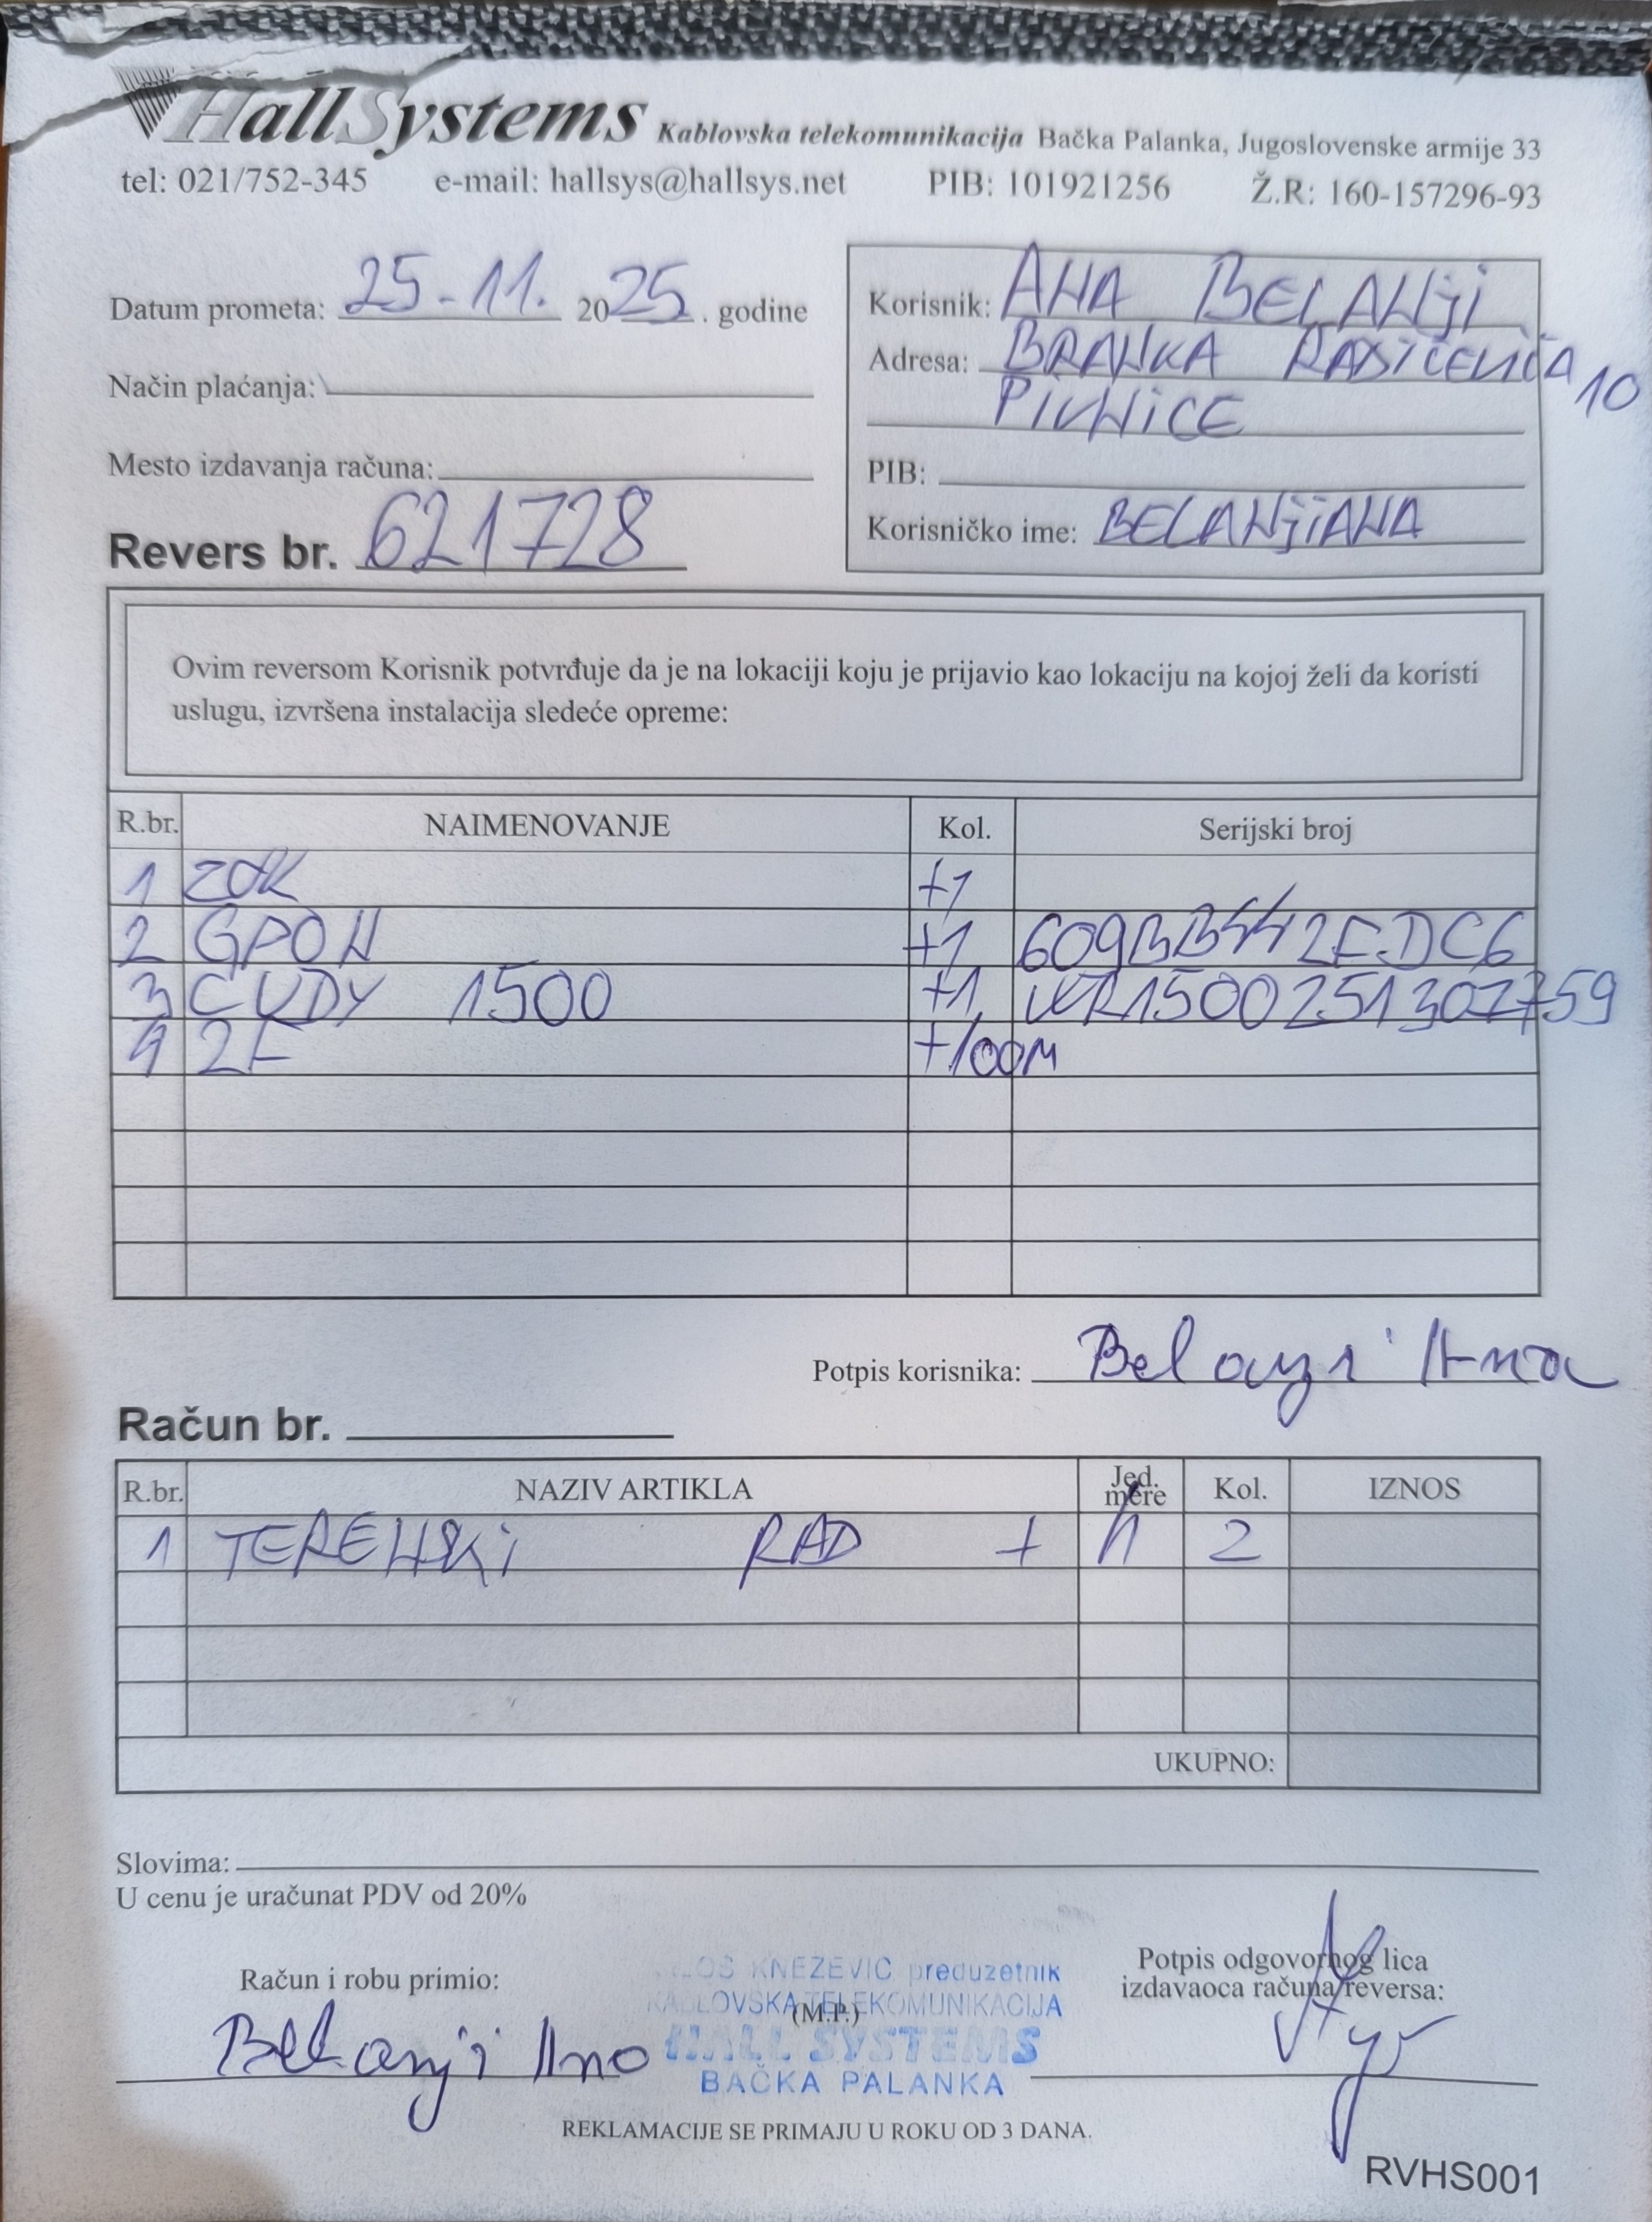 HallSystems Kablovska telekomunikacija Bačka Palanka, Jugoslovenske armije 33
tel: 021/752-345 e-mail: hallsys@hallsys.net PIB: 101921256 Ž.R: 160-157296-93
Datum prometa: 25-11. 2025. godine
Način plaćanja:
Mesto izdavanja računa:
Revers br. 621728
Korisnik: ANA BELANJi
Adresa: BRANKA RADIČEVIĆA 10
PIVNICE
PIB:
Korisničko ime: BELANJiANA
Ovim reversom Korisnik potvrđuje da je na lokaciji koju je prijavio kao lokaciju na kojoj želi da koristi
uslugu, izvršena instalacija sledeće opreme:
R.br. NAIMENOVANJE Kol. Serijski broj
1 ZOK +1
2 GPON +1
3 CUDY 1500 +1 WR1500251302759
4 2F +100M
Potpis korisnika: Belanji Ana
Račun br.
R.br. NAZIV ARTIKLA Jed. mere Kol. IZNOS
1 TERENSKi RAD + h 2
UKUPNO:
Slovima:
U cenu je uračunat PDV od 20%
Račun i robu primio:
Belanji Ana
KNEZEVIC preduzetnik
KABLOVSKA TELEKOMUNIKACIJA
(M.P.)
HALL SYSTEMS
BAČKA PALANKA
Potpis odgovornog lica
izdavaoca računa/reversa:
REKLAMACIJE SE PRIMAJU U ROKU OD 3 DANA.
RVHS001